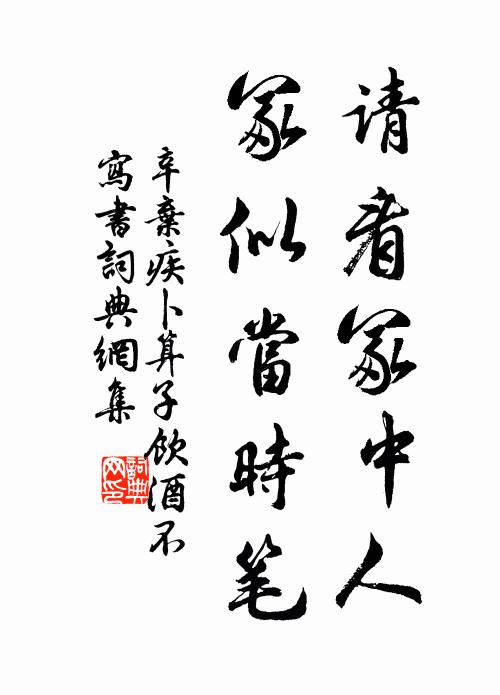 请看冢中人
冢似當時笔
辛棄疾卜算子飲酒不
寫書詞典網集
詞典网印